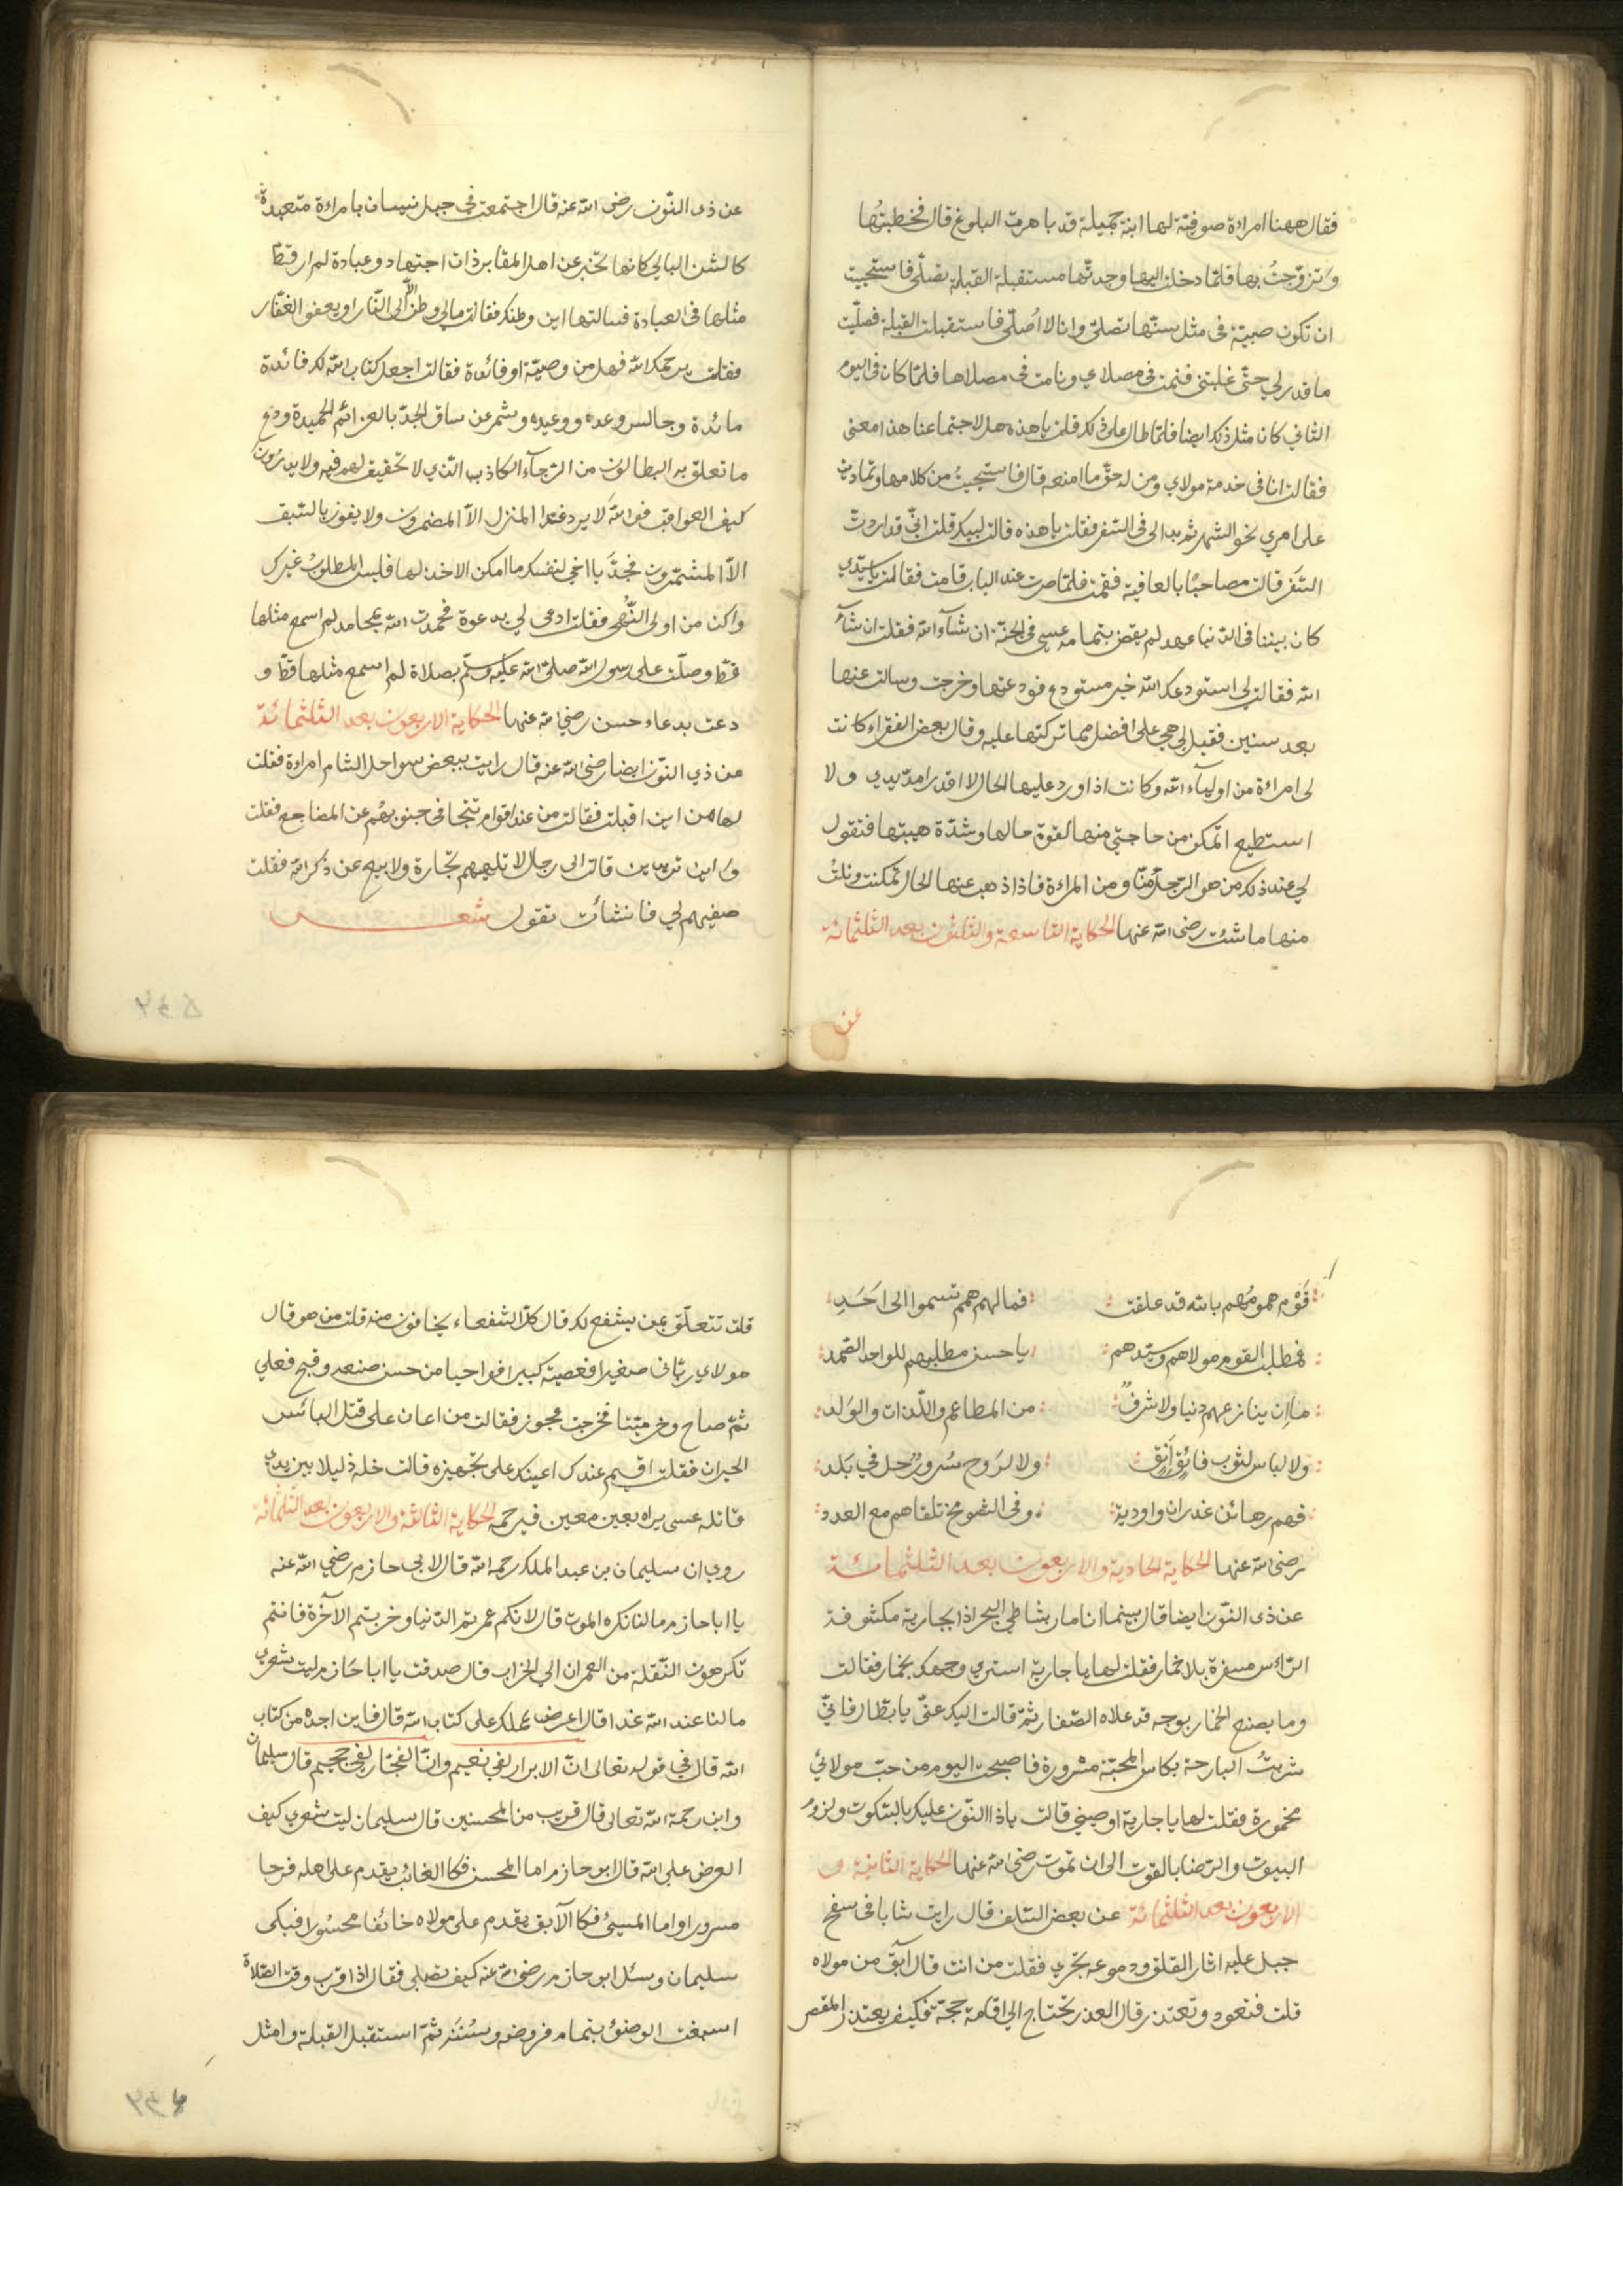 فقال ههنا امراءة صوفية لها ابنة جميلة قد باهرت البلوغ قال فخطبتُها
وتزوّجتُ بها فلمّا دخلت اليها وجدتّها مستقبلة القبلة تصلّى فاستحييت
ان تكون صبية فى مثل سنّها تصلّى وانا لا اُصلّى فاستقبلت القبلة فصلّيت
ما قدر لي حتّى غلبتنى فنمت فى مصلاي ونامت فى مصلاها فلمّا كان فى اليوم
الثاني كان مثل ذلك ايضا فلمّا طال على ذلك قلت يا هذه هل لاجتماعنا هذا معنى
فقالت انا فى خدمة مولاي ومن له حقّ ما امنعه قال فاستحييتُ من كلامها وتماديت
على امري نحو الشهر ثم بدا لى فى السّفر فقلت يا هذه قالت لبيك قلت انّي قد اردت
السّفر قالت مصاحبًا بالعافية فقمت فلمّا صرت عند الباب قامت فقالت يا سيّدي
كان بيننا فى الدّنيا عهد لم يقض بتمامه عسى فى الجنّة ان شآء الله فقلت ان شآء
الله فقالت لى استودعك الله خير مستودع فودعتها وخرجت وسالت عنها
بعد سنين فقيل لى هى على افضل مما تركتها عليه وقال بعض الفقراء كانت
لى امراءة من اوليآء الله وكانت اذا ورد عليها الحال لا اقدر امدّ يدي ولا
استطيع اتمكن من حاجتي منها لقوة حالها وشدّة هيبتها فتقول
لى عند ذلك من هو الرّجل منّا ومن المراءة فاذا ذهب عنها الحال تمكنت ونلتُ
منها ما شئت رضى الله عنها الحكاية التاسعة والثلثون بعد الثلثمائة
عن
عن ذى النّون رضى الله عنه قال اجتمعت فى جبل نيسان بامراءة متعبدة
كالشن البالي كانها تخبر عن اهل المقابر ذات اجتهاد وعبادة لم ار قطّ
مثلها فى العبادة فسالتها اين وطنك فقالت مالي وطن الّا الى النّار او يعفو الغفّار
فقلت يرحمك الله فهل من وصيّة او فائدة فقالت اجعل كتاب الله لك فائدة
مائدة وجالس وعده ووعيده وشمر عن ساق الجدّ بالعزائم الحميدة ودع
ما تعلق به البطالون من الرّجآء الكاذب الذي لا تحقيق لهم فيه ولا يدرون
كيف العواقب فوالله لا يرد غدا المنزل الّا المضمرون ولا يفوز بالسّبق
الّا المشمّرون فجدّ يا اخي لنفسك ما امكن الاخذ لها فليس المطلوب غيرك
واكن من اولى النُّهى فقلت ادعى لي بدعوة فحمدت الله بمحامد لم اسمع مثلها
قطّ وصلّت على رسول الله صلى الله عليه وسلّم بصلاة لم اسمع مثلها قطّ و
دعت بدعاء حسن رضي الله عنها الحكاية الاربعون بعد الثلثمائة
عن ذي النّون ايضا رضى الله عنه قال رايت ببعض سواحل الشام امراءة فقلت
لها من اين اقبلت فقالت من عند اقوام تتجافى جنوبهم عن المضاجع فقلت
واين تريدين قالت الى رجال لا تلهيهم تجارة ولا بيع عن ذكر الله فقلت
صفيهم لي فانشأت تقول شعر
قَوْم همومُهم بالله قد علقت فما لهم همم تسموا الى اَحَدِ
فمطلب القوم مولاهم وسيّدهم يا حسن مطلبهم للواحد الصّمد
ما اِن ينازعهم دنيا ولا شرف من المطاعم واللّذات والوَلد
ولا لباس لثوب فائق اَنِق ولا لرَوح سُرور حل في بَلد
فهم رهائن غدران واودية وفى الشّمومخ تلقاهم مع العدد
رضى الله عنها الحكاية الحادية والاربعون بعد الثلثمائة
عن ذى النّون ايضا قال بينما انا مار بشاطي البحر اذا بجارية مكشوفة
الرّاس مسفرة بلا خمار فقلت لها يا جارية استري وجهك بخمار فقالت
وما يصنع الخمار بوجه قد علاه الصّفار ثمّ قالت اليك عنّى يا بطّار فانيّ
شربتُ البارحة بكاس المحبّة مشرورة فاصبحت اليوم من حبّ مولائي
مخمورة فقلت لها يا جارية اوصيني قالت يا ذا النّون عليك بالسّكوت ولزوم
البيوت والرّضا بالقوت الى ان تموت رضى الله عنها الحكاية الثانية و
الاربعون بعد الثلثمائة عن بعض السّلف قال رايت شابا فى سفح
جبل عليه اثار القلق ودموعه تجري فقلت من انت قال آبق من مولاه
قلت فتعود وتعتذر قال العذر يحتاج الى اقامة حجّة فكيف يعتذر المقصر
قلت تتعلّق بمن يشفع لك قال كلّ الشفعاء يخافون منه قلت من هو قال
مولاي ربّانى صغيرا فعصيته كبيرا فواحيا من حسن صنعه وقبح فعلي
ثمّ صاح وخر ميّتا فخرجت عجوز فقالت من اعان على قتل البائس
الحيران فقلت اقيم عندك اعينك على تجهيزه قالت خله ذليلا بين يدي
قاتله عسى يراه بعين معين فيرحمه الحكاية الثالثة والاربعون بعد الثلثمائة
روي ان سليمان بن عبد الملك رحمه الله قال لابى حازم رضي الله عنه
يا ابا حازم مالنا نكره الموت قال لانكم عمرتم الدّنيا وخربتم الآخرة فانتم
تكرهون النّقلة من العمران الى الخراب قال صدقت يا ابا حازم ليت شعري
مالنا عند الله غدا قال اعرض عملك على كتاب الله قال فاين اجده من كتاب
الله قال فى قوله تعالى انّ الابرار لفي نعيم وانّ الفجّار لفى جحيم قال سليمان
واين رحمة الله تعالى قال قريب من المحسنين قال سليمان ليت شعري كيف
العرض على الله قال ابو حازم اما المحسن فكالغائب يقدم على اهله فرحا
مسرورا واما المسيئ فكالآبق يقدم على مولاه خائفا محسُورا فبكى
سليمان وسئل ابو حازم رضى الله عنه كيف تصلى فقال اذا قرب وقت الصّلاة
اسبغت الوضؤ بتمام فروضه وسُنَنه ثمّ استقبل القبلة وامثل